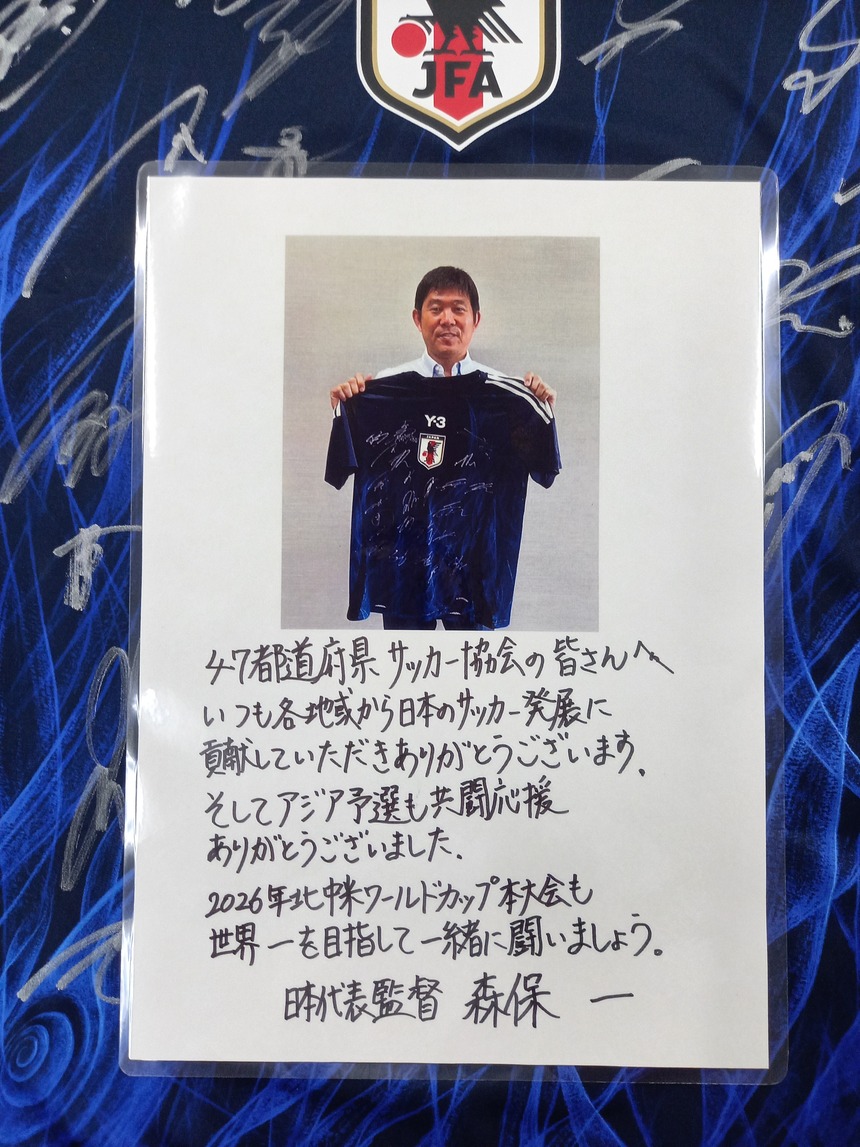 JFA
Y-3
47都道府県サッカー協会の皆さんへ
いつも各地域から日本のサッカー発展に
貢献していただきありがとうございます。
そしてアジア予選も共闘応援
ありがとうございました。
2026年北中米ワールドカップ本大会も
世界一を目指して一緒に闘いましょう。
日本代表監督 森保 一